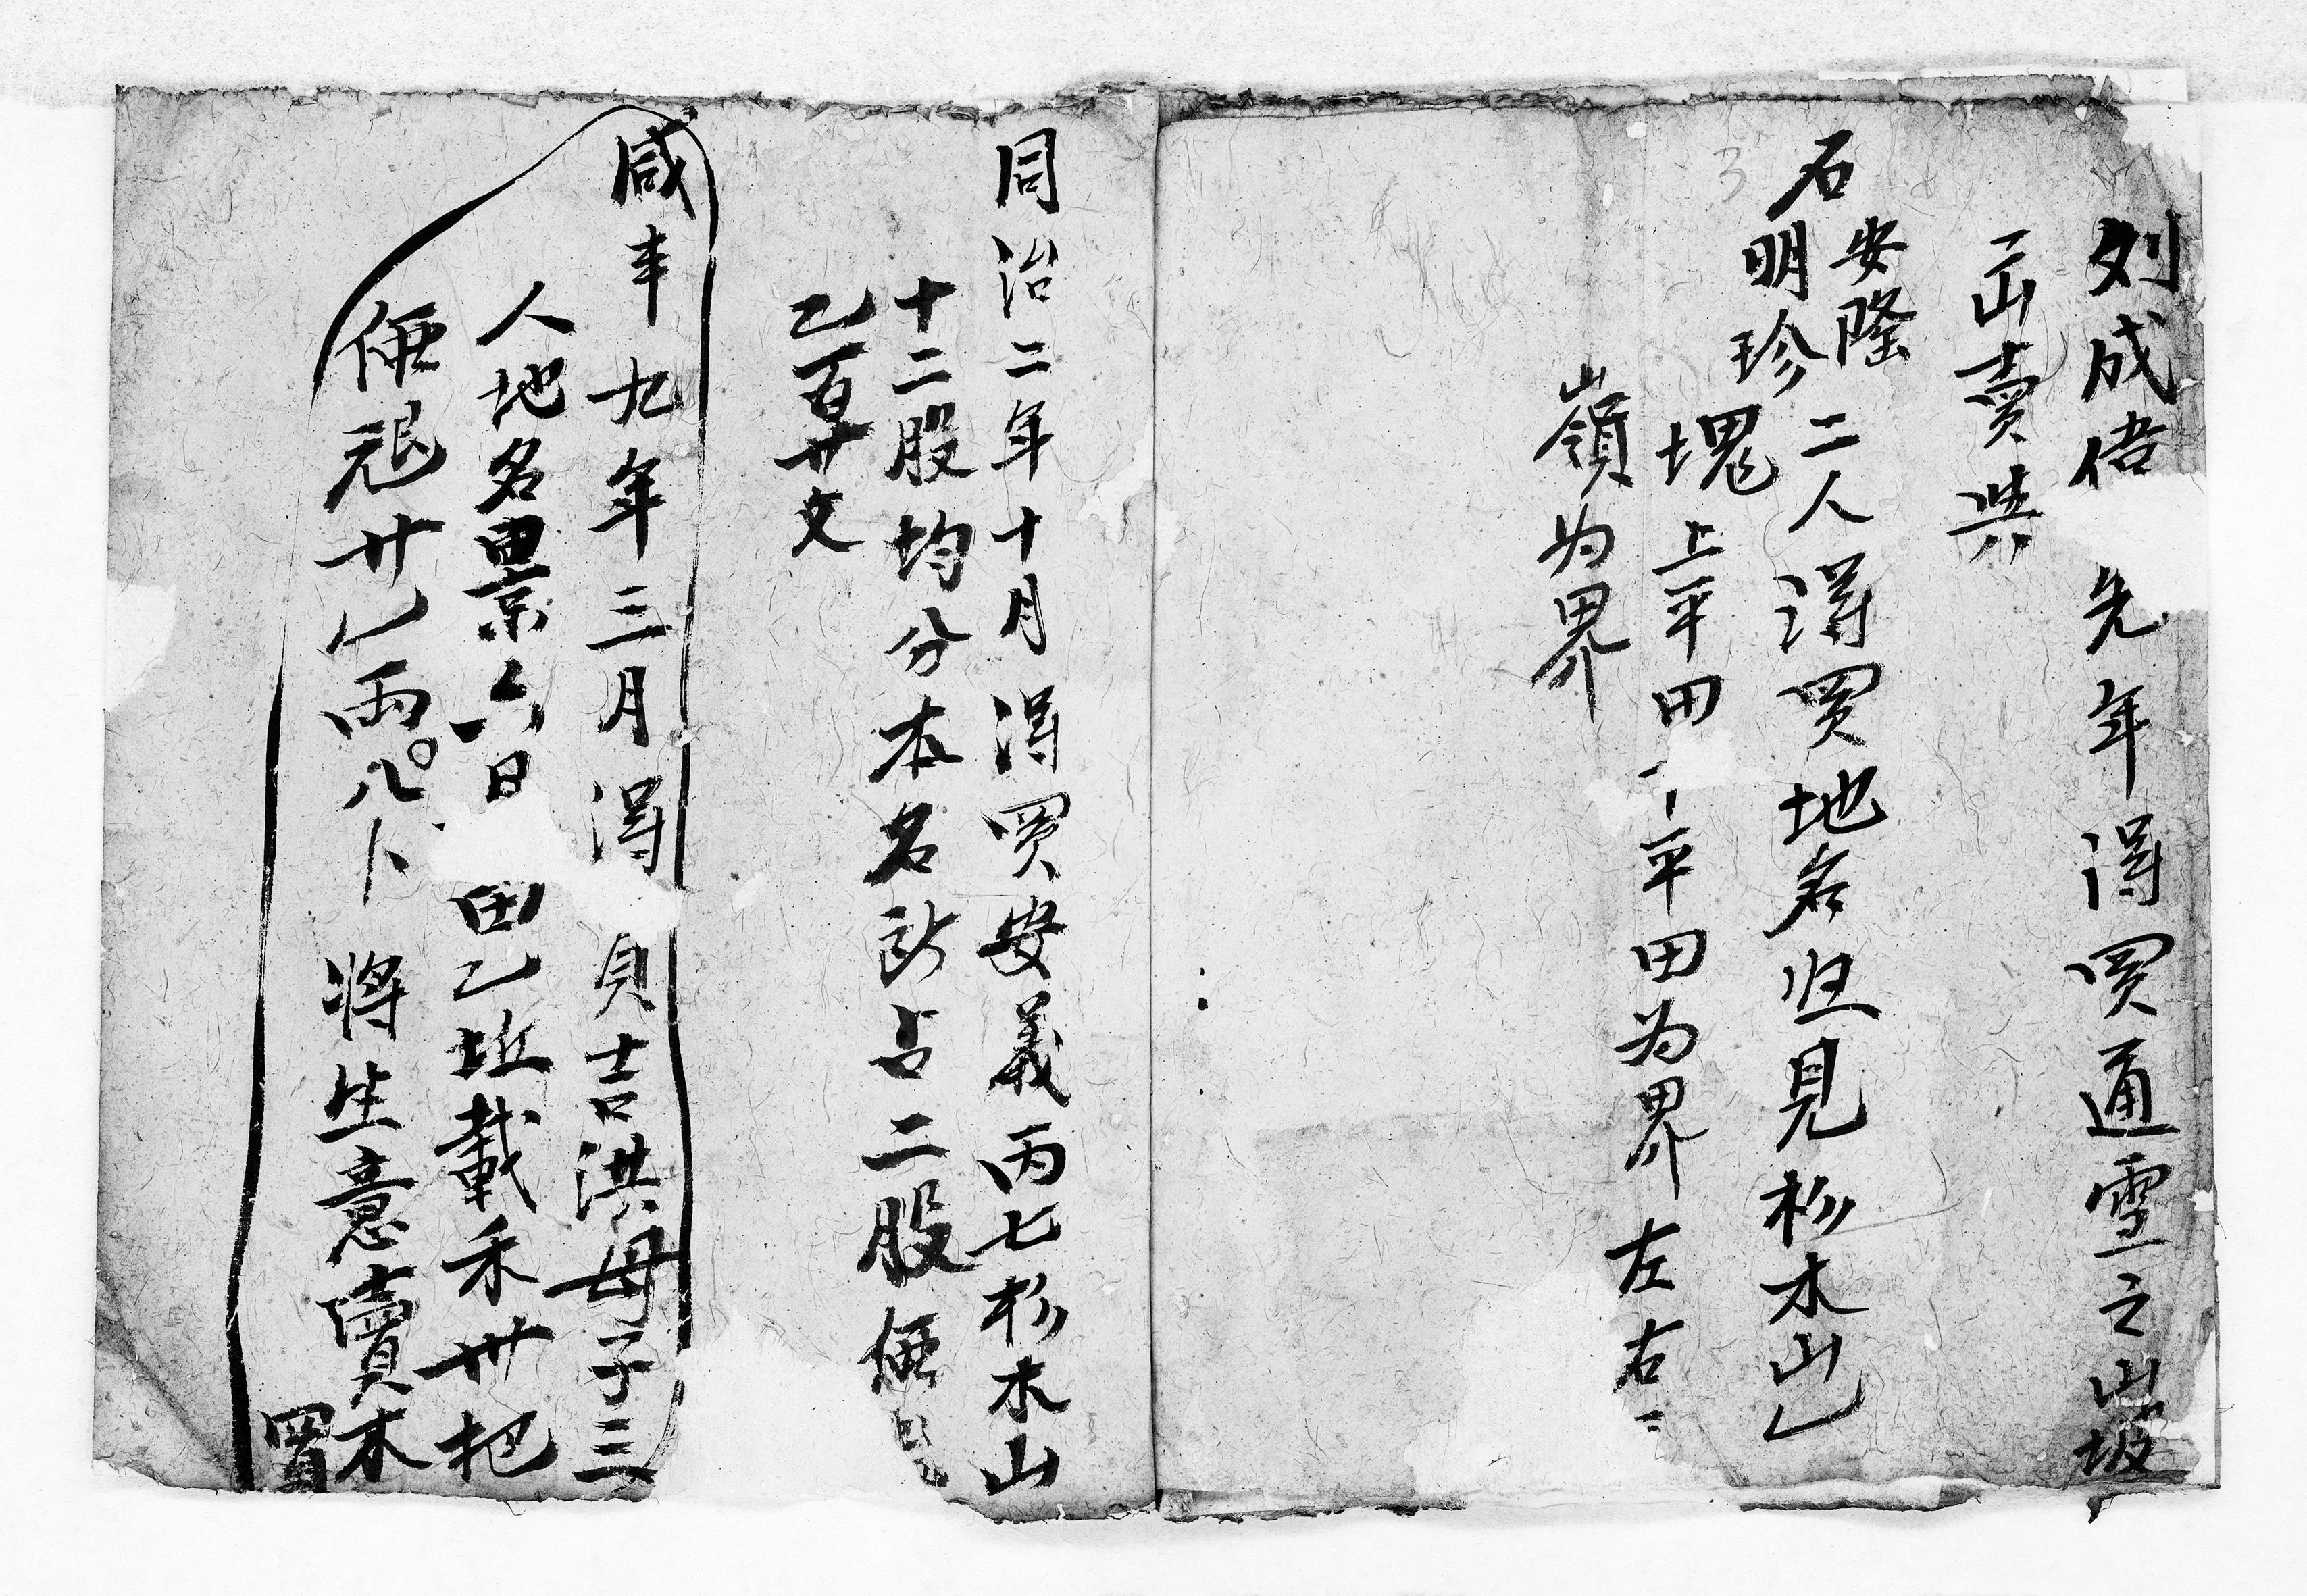 刘成 先年得買通雲之山坡
一山賣與
石安隆
明珍二人得買地名归見杉木山乙
塊上平田 下平田为界左右二
山嶺为界
同治二年十月得買安義丙七杉木山
十二股均分本名所占二股價
乙百廿文
咸丰九年三月得 貝吉洪母子三
人地名景六日 田乙坵載禾卅把
價 廿乙両〇八卜 將生意賣木
買